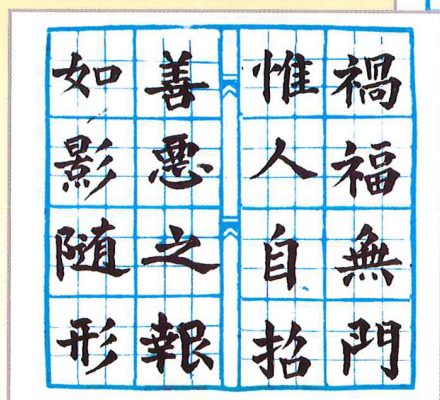 禍福無門
惟人自招
善惡之報
如影随形